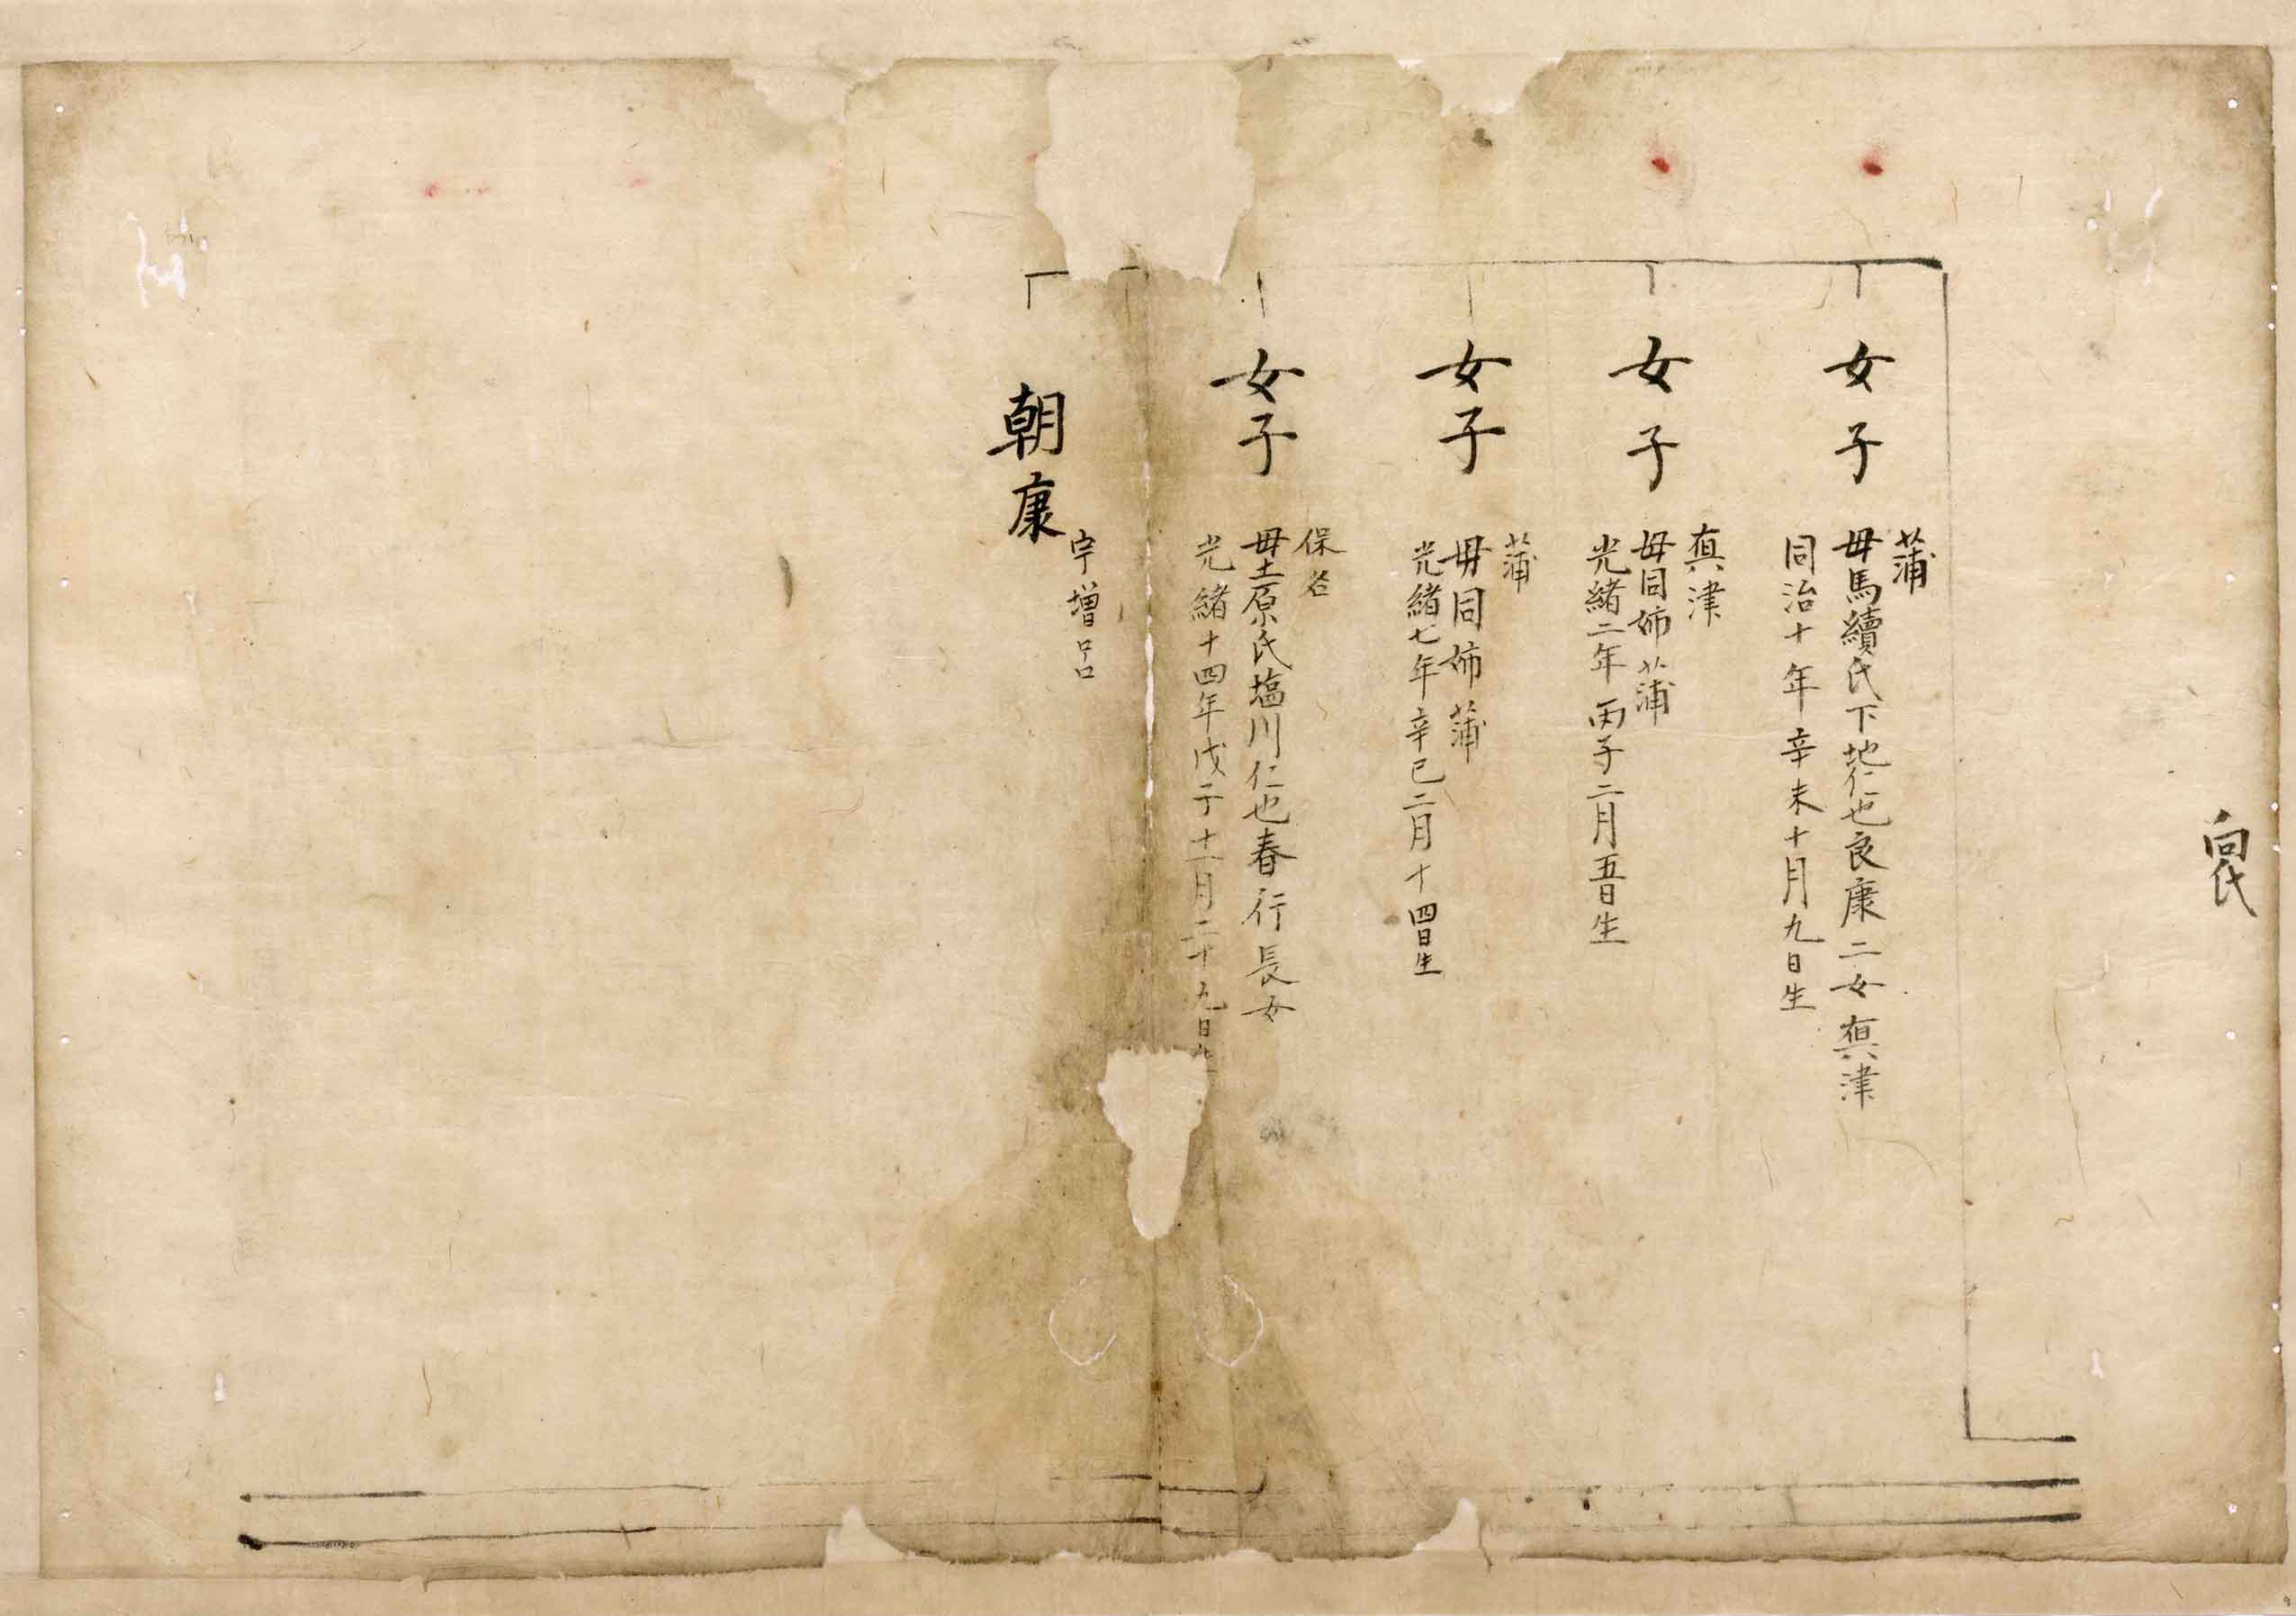 向氏
女子
蒲
母馬續氏下地仁也良康二女真津
同治十年辛未十月九日生
女子
真津
母同姉蒲
光緒二年丙子二月五日生
女子
蒲
母同姉蒲
光緒七年辛巳二月十四日生
女子
保名
母土原氏塩川仁也春行長女
光緒十四年戊子十一月二十九日生
朝康
宇增